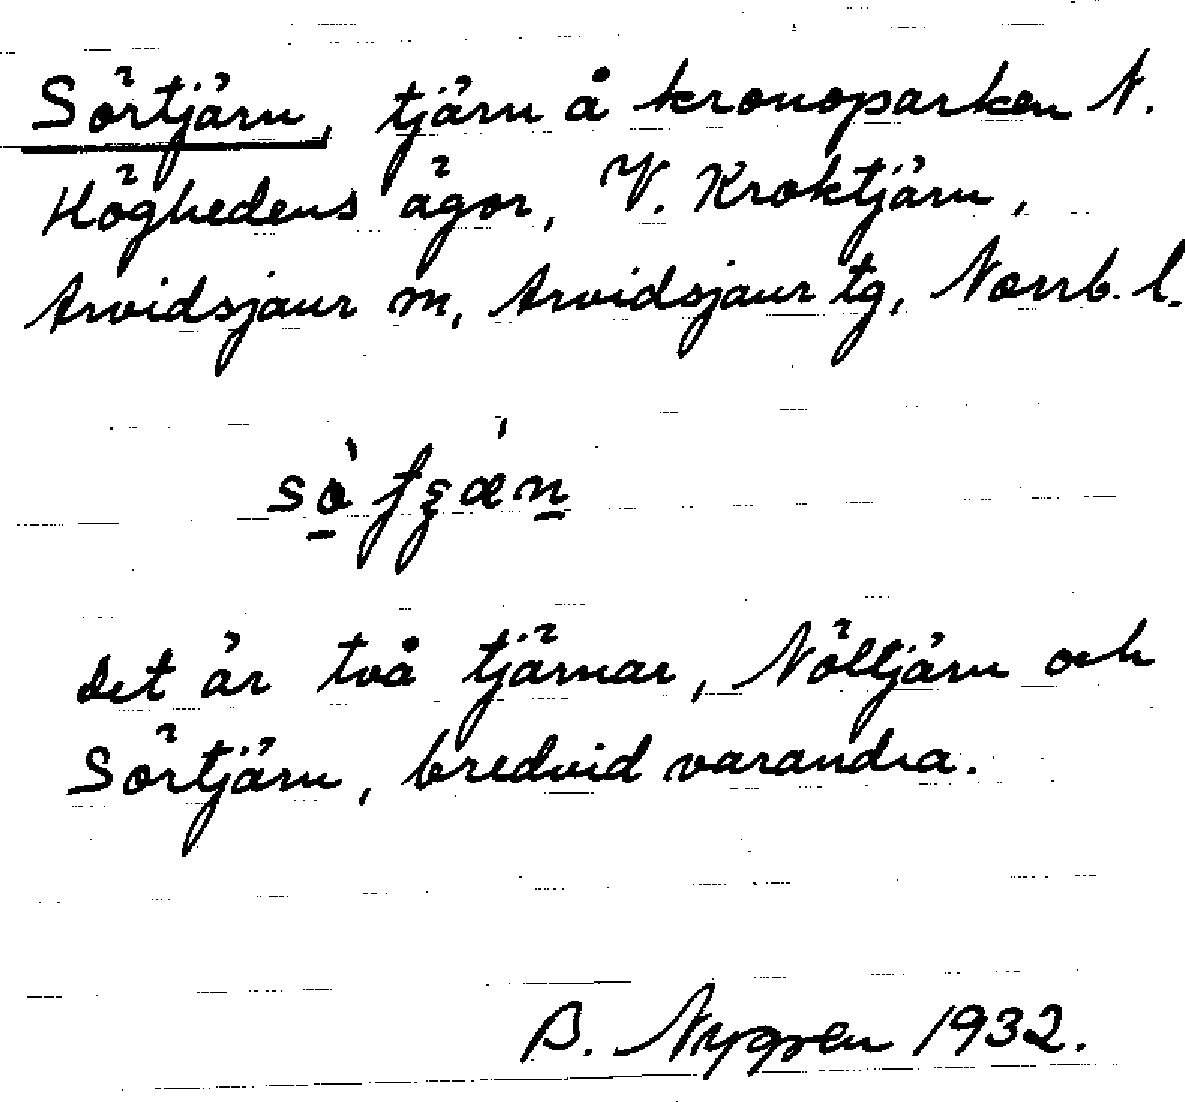 Sörtjärn, tjärn å kronoparken N.
Höghedens ägor, V. Kroktjärn,
Arvidsjaur m, Arvidsjaur tg, Norrb. l.
Det är två tjärnar, Nöltjärn och
Sörtjärn, bredvid varandra.
B. Nygren 1932.